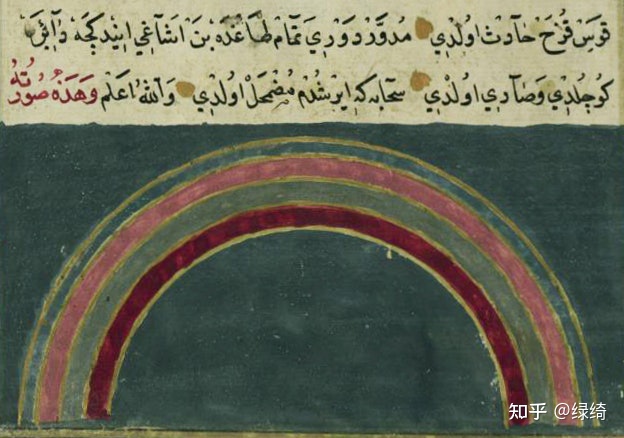 قَوسِ قُزَحَ حَادث اولدي مُدوَّر دَوري تمَام طَاغدَه بن اشَاغي ايندكچَه دآئرَه
كوچلدي وصَآري اولدي سحابه كه ايرشدم مضمحل اولدي وَاللهُ اعلم وَهَذهُ صُورَتُهُ
知乎 @绿绮